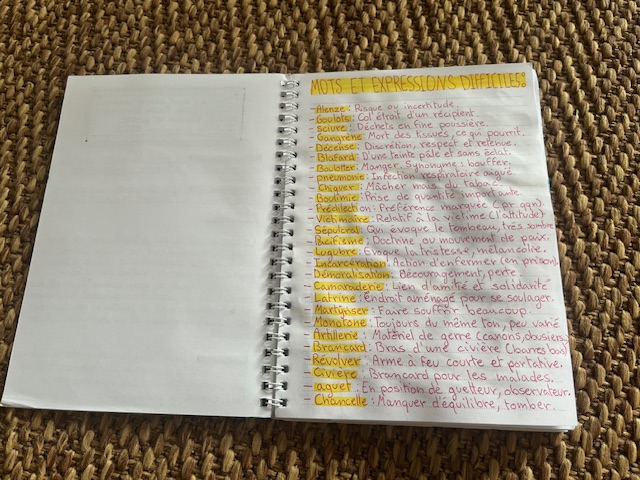 MOTS ET EXPRESSIONS DIFFICILES:
- Alenze : Risque ou incertitude.
- Goulots : Col étroit d'un récipient.
- Sciure : Déchets en fine poussière.
- Gangrène : Mort des tissus, ce qui pourrit.
- Décense : Discrétion, respect et retenue.
- Blafard : D'une teinte pâle et sans éclat.
- Boulotter : Manger. Synonyme : bouffer.
- pneumonie : Infection respiratoire aiguë
- Chiquer : Mâcher mais du tabac.
- Boulimie : Prise de quantité importante.
- Prédilection : Préférence marquée (pr qqn).
- Victimaire : Relatif à la victime (l'attitude)
- Sépulcral : Qui évoque le tombeau, très sombre
- Pacifisme : Doctrine ou mouvement de paix.
- Lugubre : Evoque la tristesse, mélancolie.
- Incarcération : Action d'enfermer (en prison).
- Démoralisation : Découragement, perte.
- Camaraderie : Lien d'amitié et solidarité
- Latrine : Endroit aménagé pour se soulager.
- Martyriser : Faire souffrir beaucoup.
- Monotone : Toujours du même ton, peu varié.
- Artillerie : Matériel de gerre (canons, obusiers)
- Brancard : Bras d'une civière (barres bois)
- Révolver : Arme à feu courte et portative.
- Civière : Brancard pour les malades.
- aguet : En position de guetteur, observateur.
- Chancelle : Manquer d'équilibre, tomber.